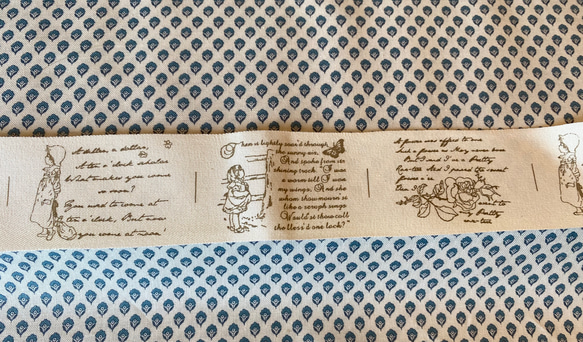 A diller, a dollar,
A ten o'clock scholar
What makes you come
so soon?
You used to come at
ten o'clock, But now
you come at noon!
Then lightly soar'd through
the sunny air,
And spoke from its
shining track: I was
a worm till I won
my wings, And she
whom thou mourn'st
like a seraph sings
Would'st thou call
the bless'd one back?"
A flower was offer'd to me
Such a flower as May never bore
But I said I've a Pretty
Rose-tree And I passed the sweet
flower o'er
Then I
my Pretty
rose-tree